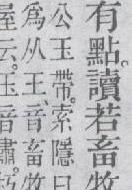 有點讀若畜牧
公玉帶索隱曰
爲从王音畜牧
云玉音肅